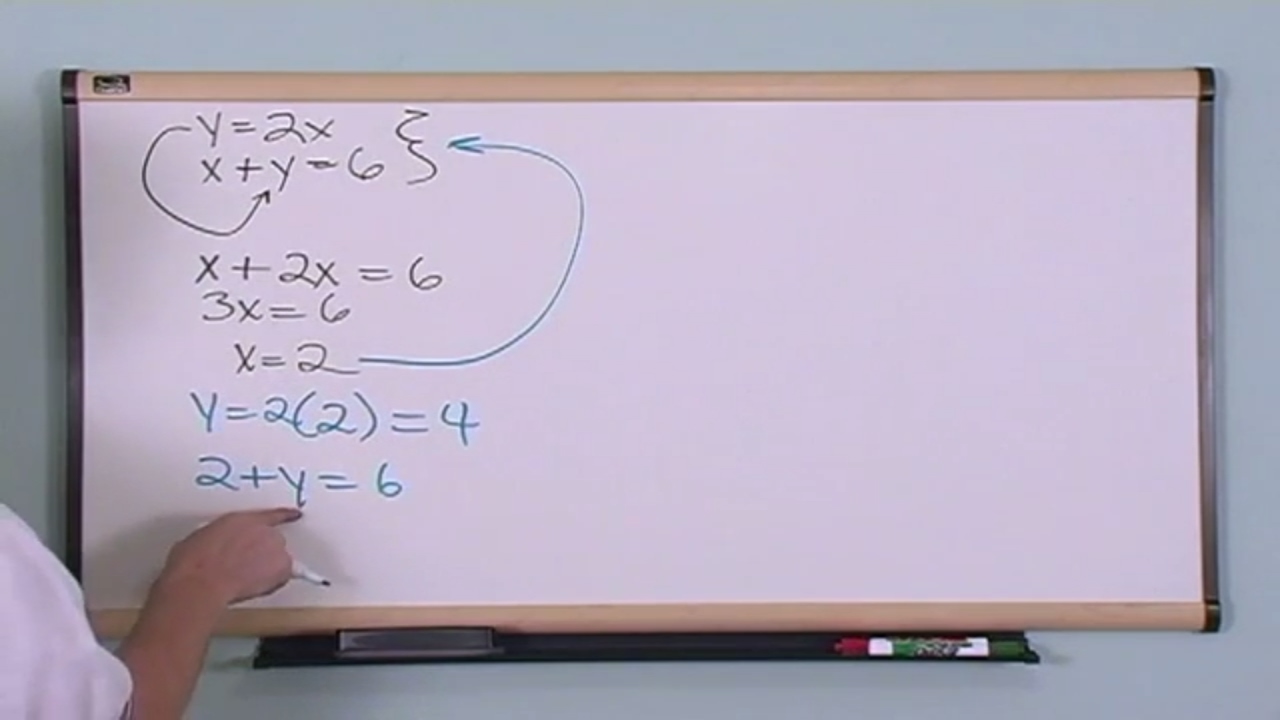 y=2x
x+y=6
x+2x=6
3x=6
x=2
y=2(2)=4
2+y=6